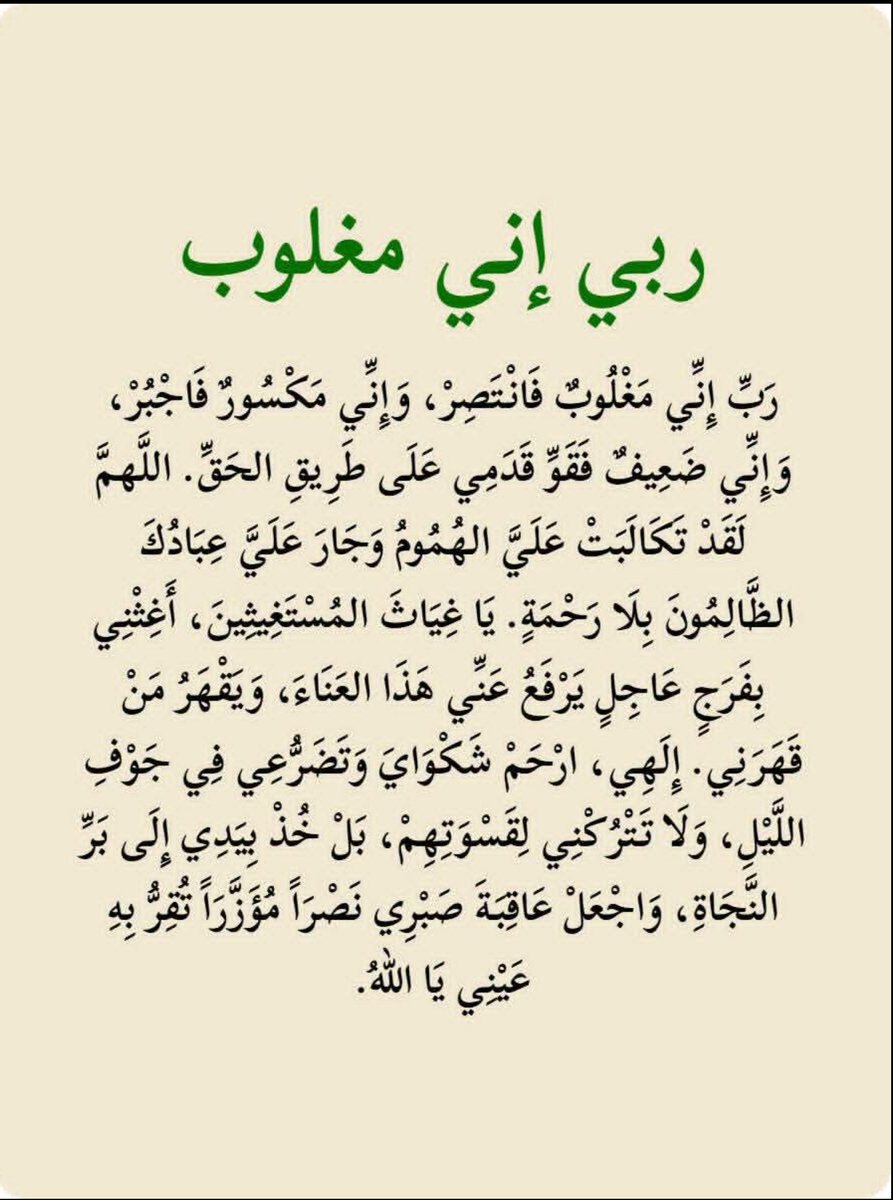 ربي إني مغلوب
رَبِّ إِنِّي مَغْلُوبٌ فَانْتَصِرْ، وَإِنِّي مَكْسُورٌ فَاجْبُرْ،
وَإِنِّي ضَعِيفٌ فَقَوِّ قَدَمِي عَلَى طَرِيقِ الحَقِّ. اللَّهمَّ
لَقَدْ تَكَالَبَتْ عَلَيَّ الهُمُومُ وَجَارَ عَلَيَّ عِبَادُكَ
الظَّالِمُونَ بِلَا رَحْمَةٍ. يَا غِيَاثَ المُسْتَغِيثِينَ، أَغِثْنِي
بِفَرَجٍ عَاجِلٍ يَرْفَعُ عَنِّي هَذَا العَنَاءَ، وَيَقْهَرُ مَنْ
قَهَرَنِي. إِلَهِي، ارْحَمْ شَكْوَايَ وَتَضَرُّعِي فِي جَوْفِ
اللَّيْلِ، وَلَا تَتْرُكْنِي لِقَسْوَتِهِمْ، بَلْ خُذْ بِيَدِي إِلَى بَرِّ
النَّجَاةِ، وَاجْعَلْ عَاقِبَةَ صَبْرِي نَصْرَاً مُؤَزَّرَاً تُقِرُّ بِهِ
عَيْنِي يَا اللهُ.